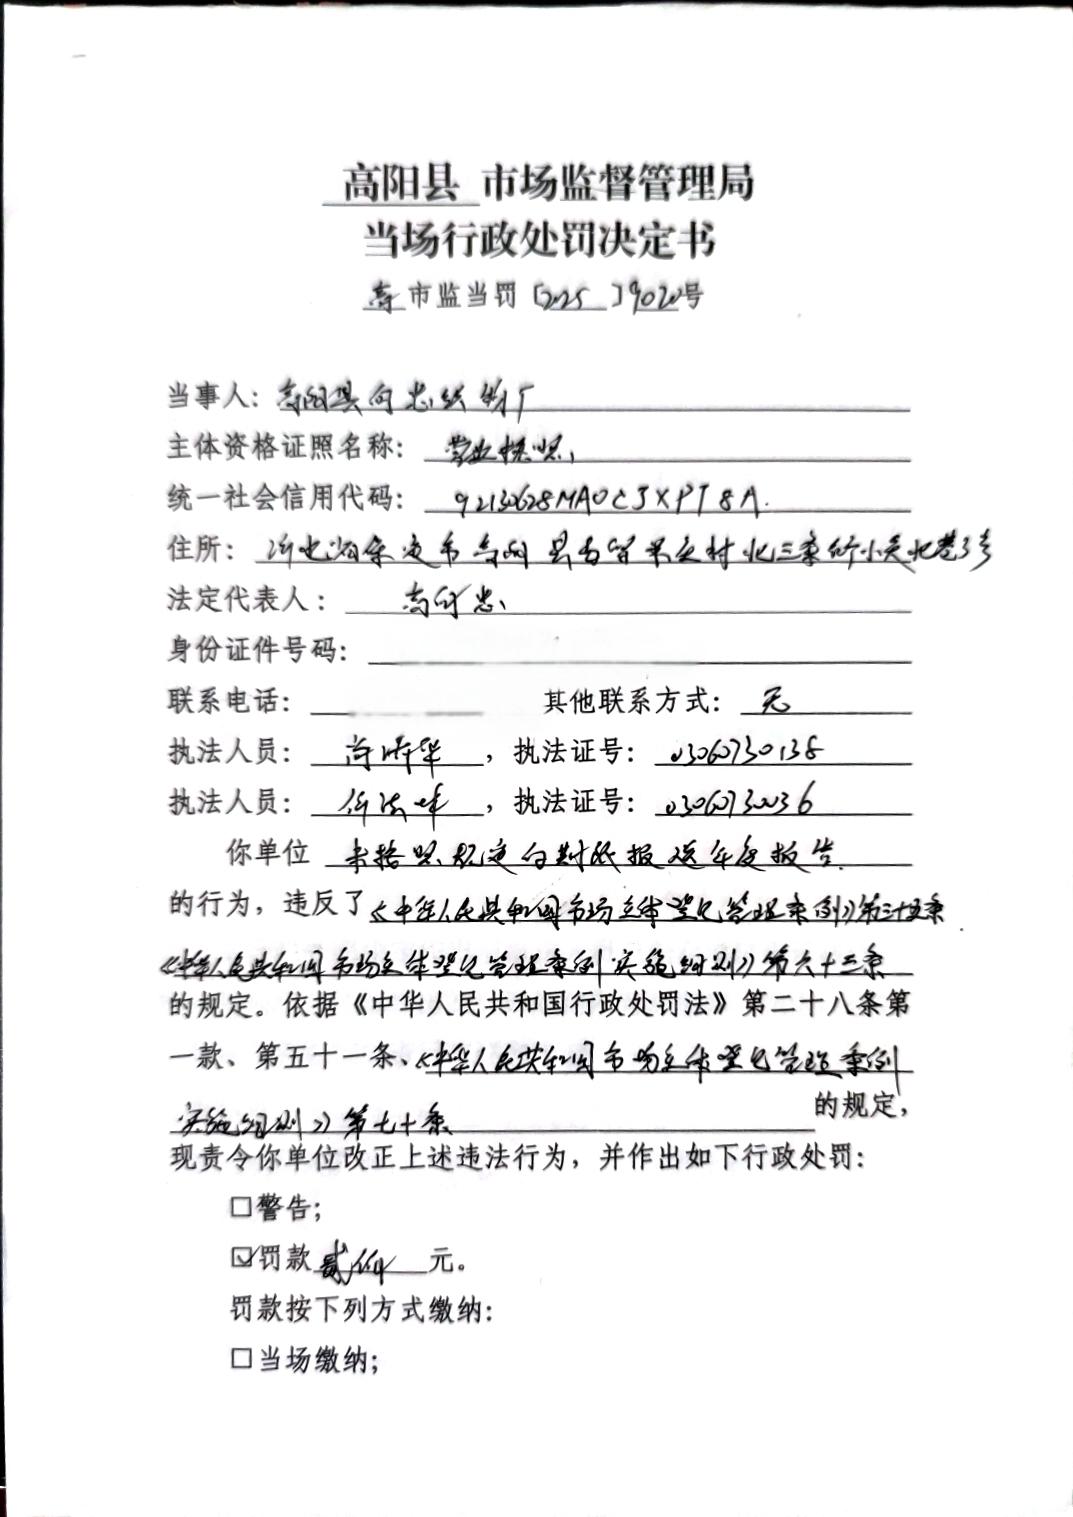 高阳县 市场监督管理局
当场行政处罚决定书
高市监当罚〔2025〕9020号
当事人：高阳县向忠纺纱厂
主体资格证照名称：营业执照
统一社会信用代码：92130628MA0CJXPT8A
住所：河北省保定市高阳县 村北三条 小 北巷3号
法定代表人：高向忠
身份证件号码：
联系电话： 其他联系方式：无
执法人员： 华，执法证号：03060730138
执法人员： ，执法证号：03060730036
你单位 未按照规定的时间报送年度报告
的行为，违反了《中华人民共和国市场主体登记管理条例》第三十五条
《中华人民共和国市场主体登记管理条例实施细则》第六十三条
的规定。依据《中华人民共和国行政处罚法》第二十八条第
一款、第五十一条、《中华人民共和国市场主体登记管理条例
实施细则》第七十条 的规定，
现责令你单位改正上述违法行为，并作出如下行政处罚：
☐警告；
☑罚款贰仟元。
罚款按下列方式缴纳：
☐当场缴纳；